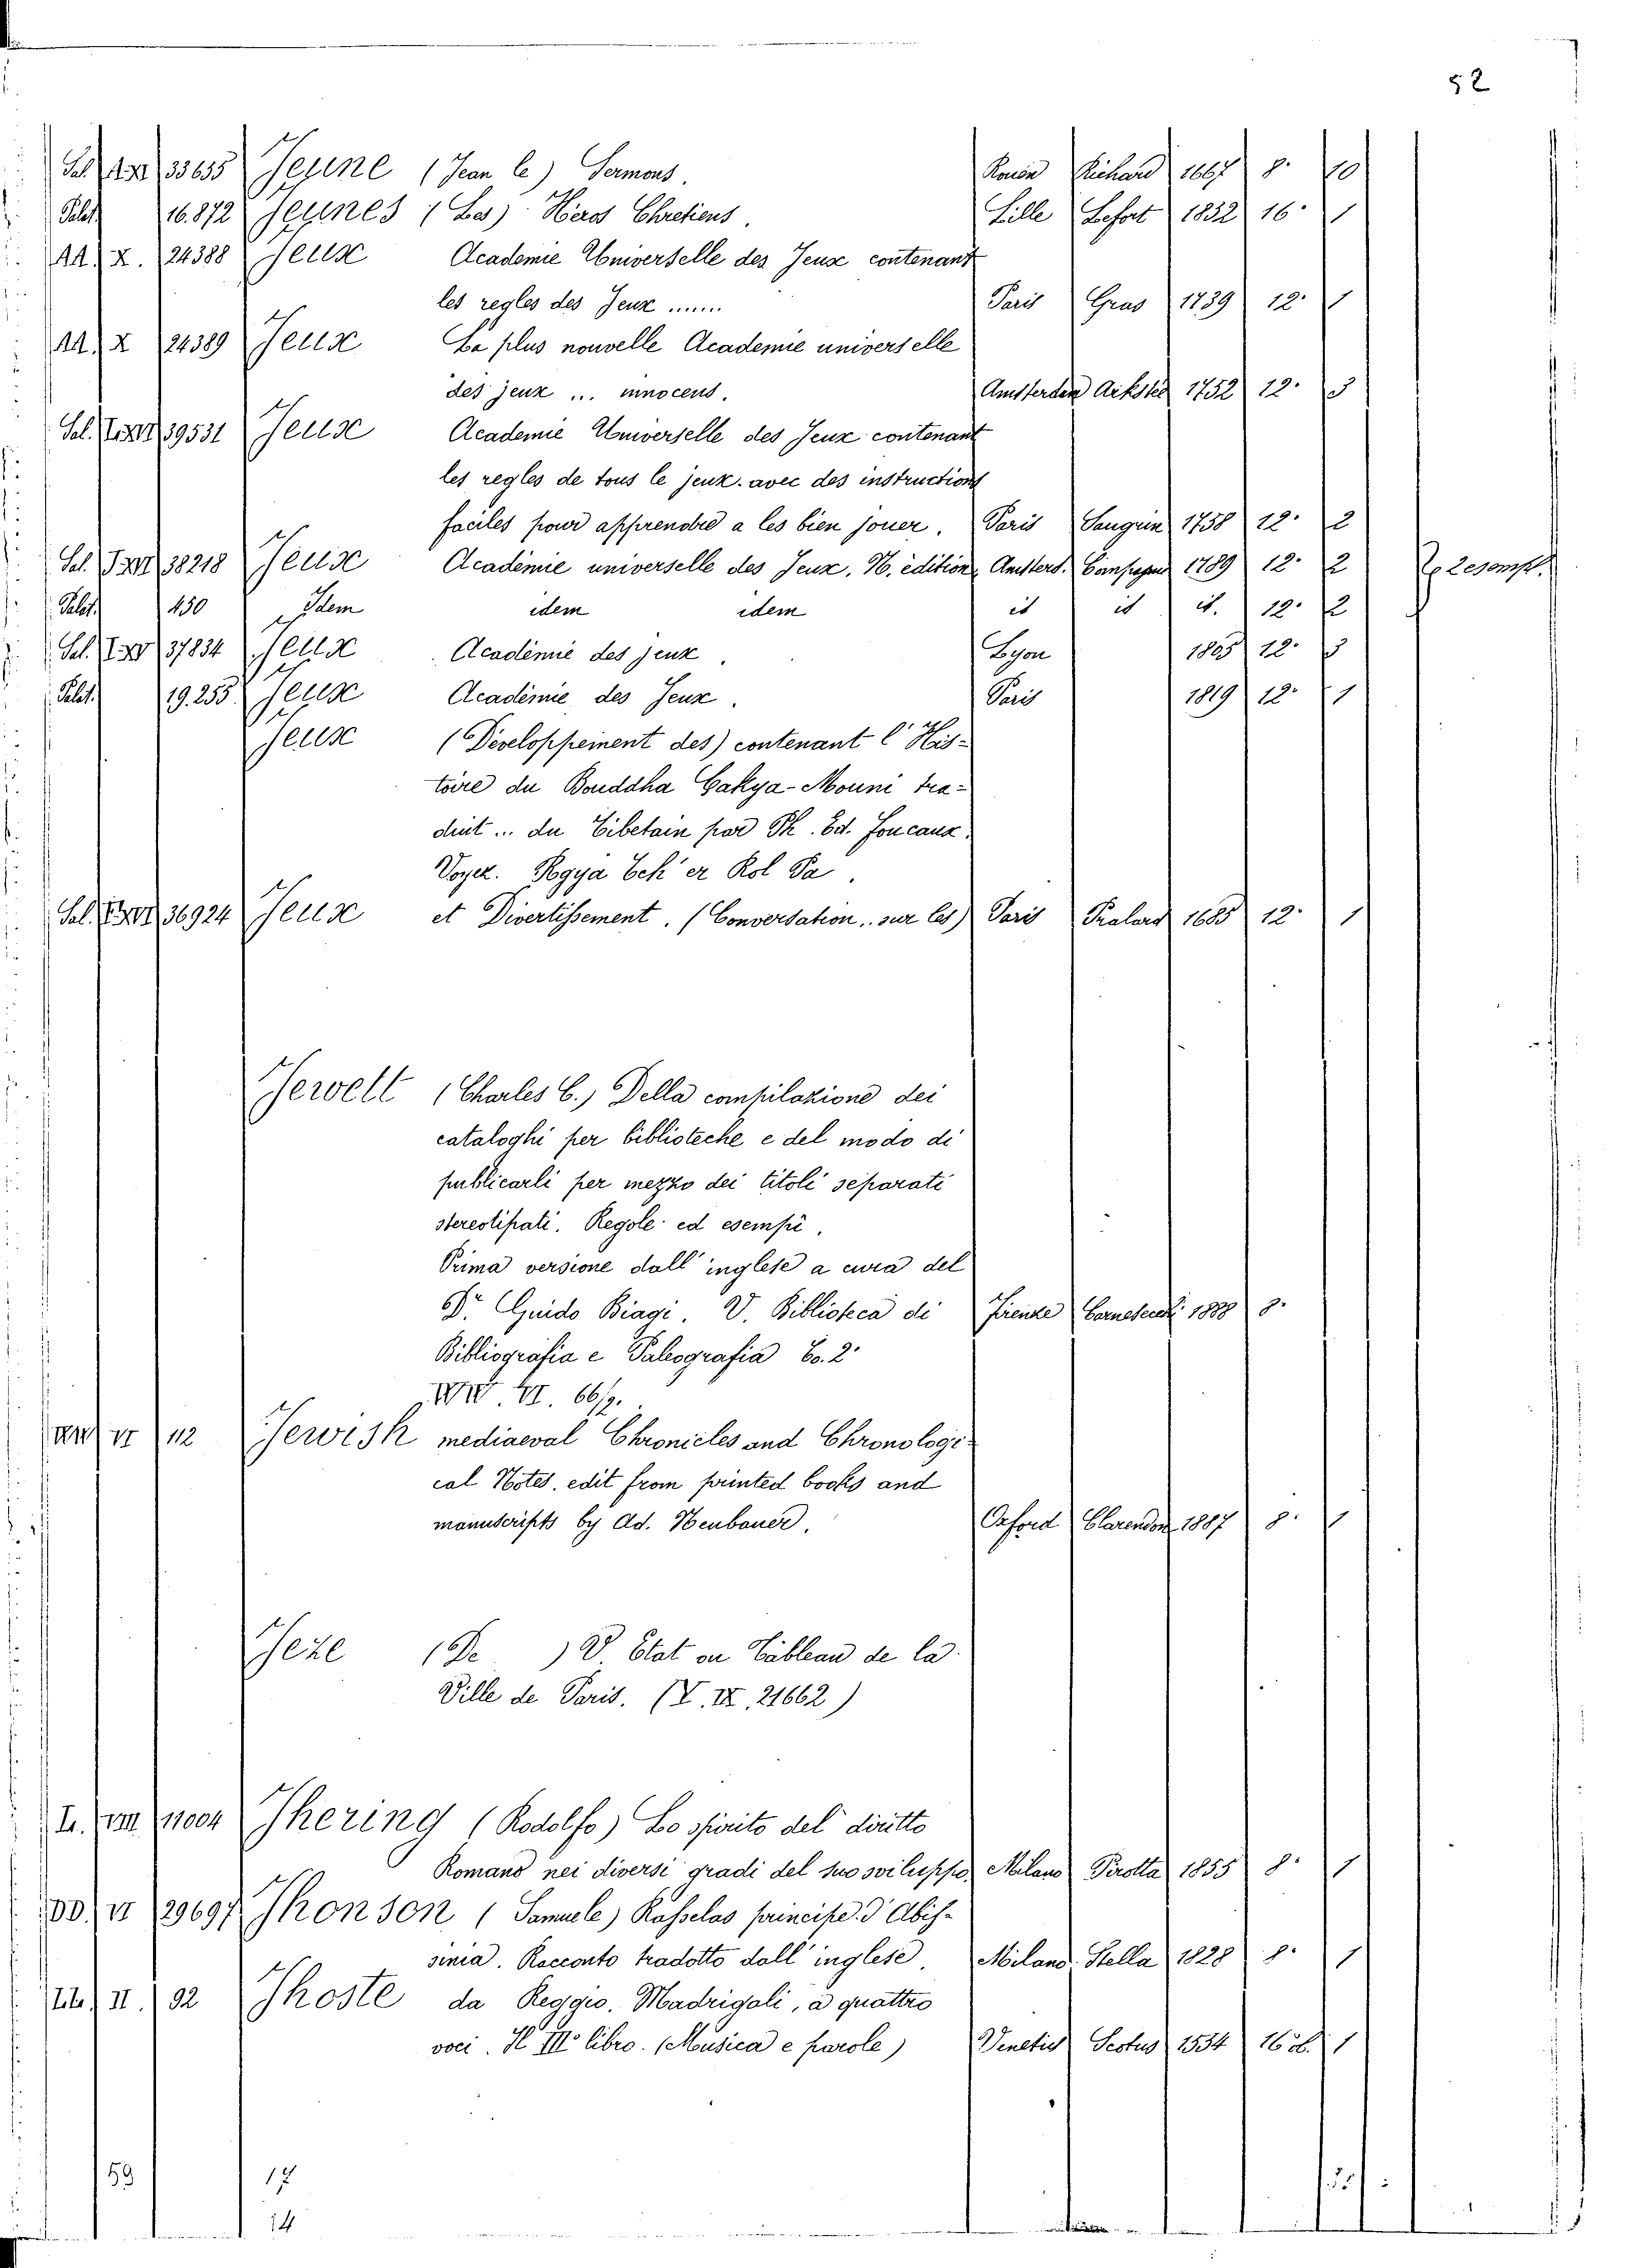 52
33655 Jejune (Jean le) Sermons. Rouen Richard 1667 8.° 10
Palat. 16.872 Jeunes (Les) Héros Chretiens. Lille Lefort 1832 16.° 1
AA. X. 24388 Jeux Academie Universelle des Jeux contenant
les regles des Jeux ...... Paris Gras 1739 12.° 1
AA. X 24389 Jeux La plus nouvelle Academie universelle
des jeux ... innocens. Amsterdam Arkstée 1752 12.° 3
Sal. 39531 Jeux Academie Universelle des Jeux contenant
les regles de tous le jeux. avec des instructions
faciles pour apprendre a les bien jouer. Paris Saugrin 1758 12.° 2
Sal. 38218 Jeux Académie universelle des Jeux. N. édition Amsterd. 1789 12.° 2 2 esempl.
Palat. 450 Idem idem idem id id id. 12.° 2
Sal. 37834 Jeux Académie des jeux. Lyon 1805 12.° 3
Palat. 19.255 Jeux Académie des Jeux. Paris 1819 12.° 1
Jeux (Développement des) contenant l'His-
toire du Bouddha Cakya-Mouni tra-
duit ... du Tibetain par Ph. Ed. Foucaux.
Voyez. Rgya Tch'er Rol Pa.
Sal. 36924 Jeux et Divertissement. (Conversation.. sur les) Paris Pralard 1685 12.° 1
Jewett (Charles C.) Della compilazione dei
cataloghi per biblioteche e del modo di
publicarli per mezzo dei titoli separati
stereotipati. Regole ed esempi.
Prima versione dall'inglese a cura del
Dr. Guido Biagi. V. Biblioteca di Firenze Carnesecchi 1888 8.°
Bibliografia e Paleografia Co. 2.°
VI. 66/2.
VI 112 Jewish mediaeval Chronicles and Chronologi-
cal Notes. edit from printed books and
manuscripts by Ad. Neubauer. Oxford Clarendon 1887 8.° 1
Jeze (De ) V. Etat ou Tableau de la
Ville de Paris. (V. IX. 21662)
L. VIII 11004 Jhering (Rodolfo) Lo spirito del diritto
Romano nei diversi gradi del suo sviluppo. Milano Pirotta 1855 8.° 1
DD. VI 29697 Jhonson (Samuele) Rasselas principe d'Abis-
sinia. Racconto tradotto dall'inglese. Milano Stella 1828 8.° 1
II. 92 Jhoste da Reggio. Madrigali, a quattro
voci. Il III° libro. (Musica e parole) Venetiis Scotus 1554 16° ob. 1
59 17
14